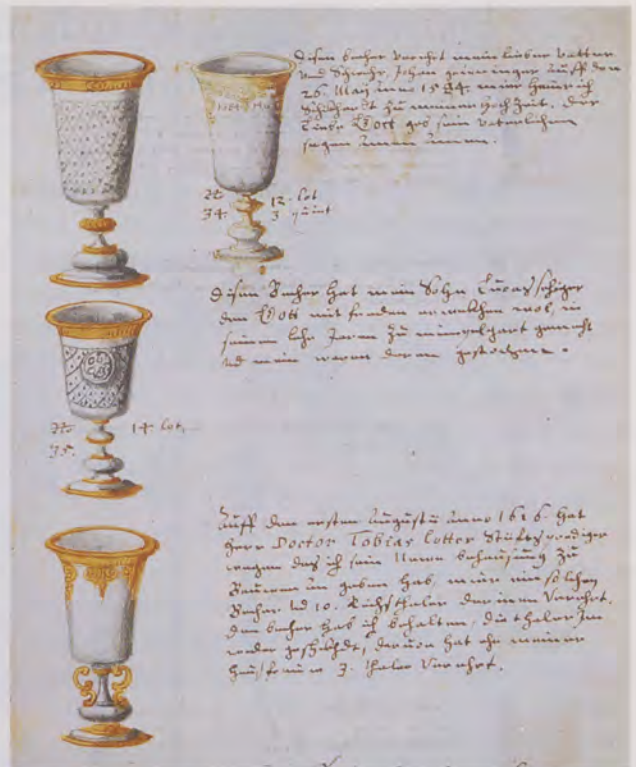 disen becher verehrt mein lieber vetter
und Schwehr Johan grieninger auff den
26. Maij anno 1584. mir Heinrich
Schickhardt zu meiner Hochzeit. der
liebe Gott geb sein vaterlichen
segen amen amen.
1584
№ 34
12. lot
3 quint
disen Becher hat mein Sohn Lucas seliger
dem Gott mit freuden
in
seinen lehr Jaren zu mimpelgart gemacht
und mein daran gestochen.
№ 35.
14 lot.
Auff den ersten Augustij anno 1616. hat
herr Doctor Tobias lotter Stüfftsprediger
wegen das ich sein Neue behausung zu
Bauwen an geben hab, mir ein solchen
Becher und 10. Reichsthaler darinen Verehrt.
den becher hab ich behalten, die thaler Im
wider geschickht, daruon hat ehr meiner
hausfrauw 3. thaler Verehrt.